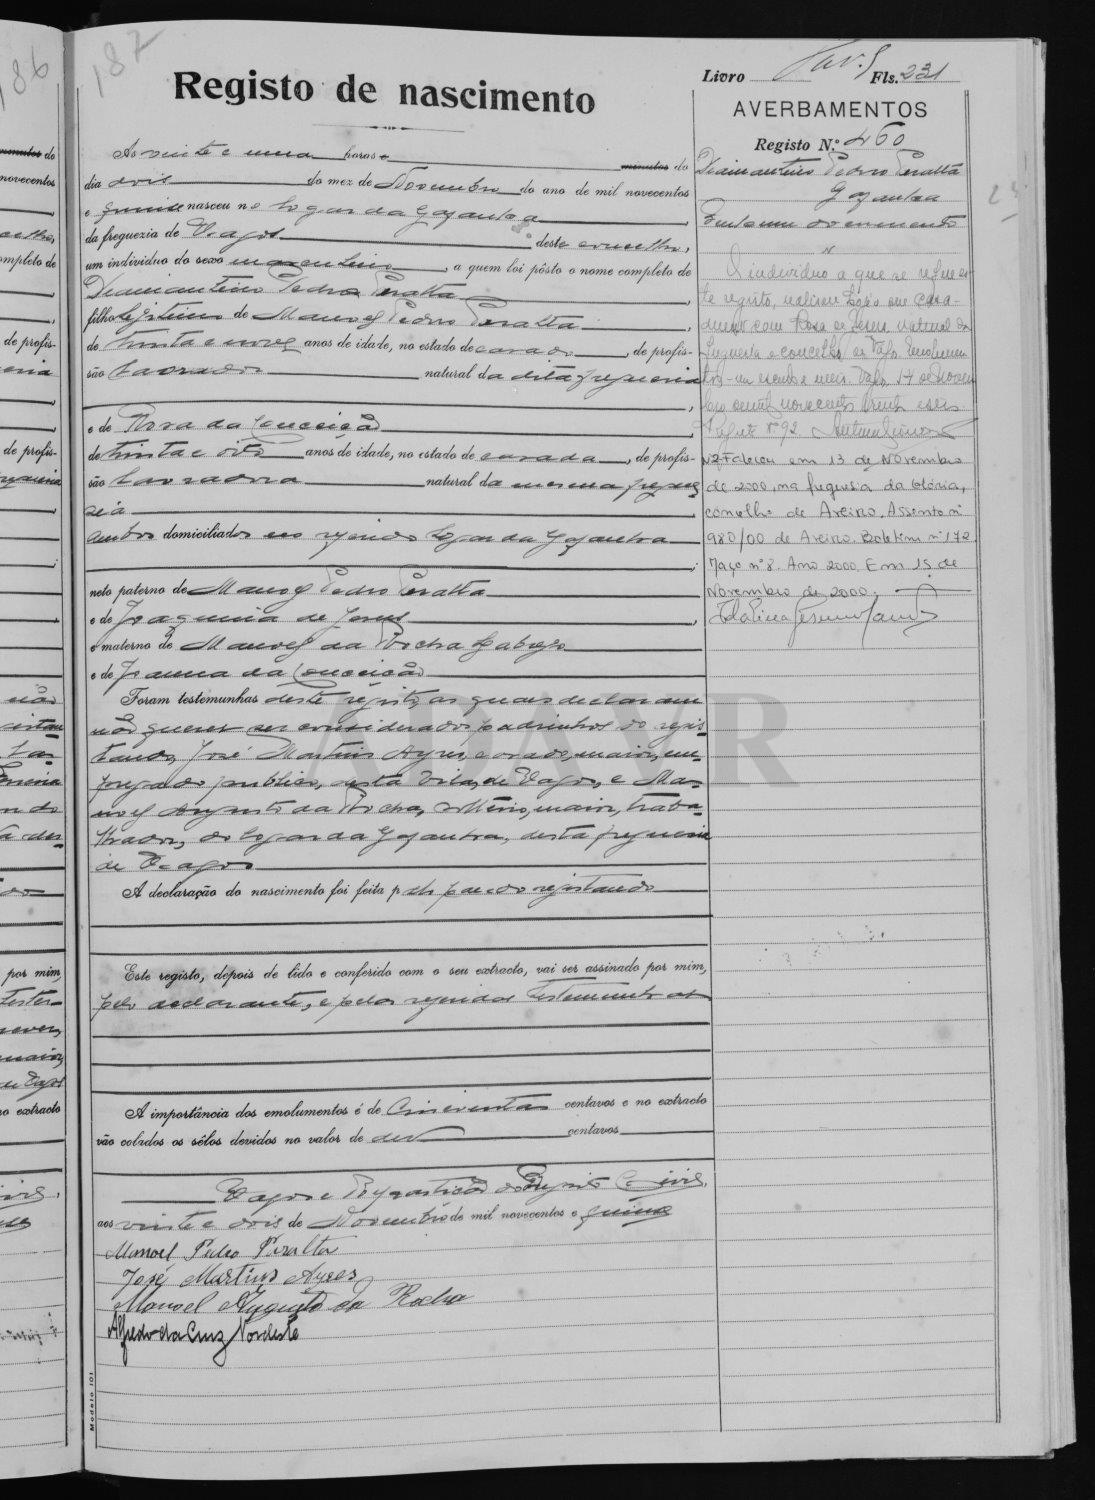 186
187
Livro Fls. 231
Registo de nascimento
AVERBAMENTOS
Registo N.º 460
Diamantino Pedro Peralta
Gafanha
Emtem documento
As vinte e uma horas e minutos do
dia dois do mez de Novembro do ano de mil novecentos
e quinze nasceu no logar da Gafanha
da freguezia de Vagos deste concelho,
um individuo do sexo masculino, a quem foi pôsto o nome completo de
Diamantino Pedro Peralta,
filho legitimo de Manoel Pedro Peralta,
de trinta e nove anos de idade, no estado de casado, de profis-
são lavrador natural da dita freguezia
e de Rosa da Conceição,
de trinta e oito anos de idade, no estado de casada, de profis-
são lavradora natural da mesma fregue-
sia
ambos domiciliados no referido logar da Gafanha;
neto paterno de Manoel Pedro Peralta
e de Joaquina de Jesus,
e materno de Manoel da Rocha
e de Joanna da Conceição
Foram testemunhas deste registo, as quaes declaram
não querer ser considerados padrinhos do regis-
tando, José Martins Ayres, casado, maior, em-
pregado publico, desta Vila de Vagos, e Ma-
noel Augusto da Rocha, maior, traba-
lhador, do logar da Gafanha, desta freguezia
de Vagos
A declaração do nascimento foi feita pelo pae do registando
Este registo, depois de lido e conferido com o seu extracto, vai ser assinado por mim,
pelo declarante, e pelas referidas testemunhas
A importância dos emolumentos é de cincoenta centavos e no extracto
vão colados os sêlos devidos no valor de dez centavos
Vagos e Repartição do Registo Civil,
aos vinte e dois de Novembro de mil novecentos e quinze
Manoel Pedro Peralta
José Martins Ayres
Manoel Augusto da Rocha
Alfredo da Cruz Nordeste
Modelo 101
O individuo a que se refere es-
te registo, realisou hoje o seu casa-
mento com Rosa de Jesus natural da
freguesia e concelho de Vagos. Emolumen-
tos - um escudo e meio. Vagos 14 de
mil novecentos trinta e seis
Nº 92.
Nº2 - Faleceu em 13 de Novembro
de 2000, na freguesia da Glória,
concelho de Aveiro. Assento nº
980/00 de Aveiro. Boletim nº 172
Maço nº 8. Ano 2000. Em 15 de
Novembro de 2000.